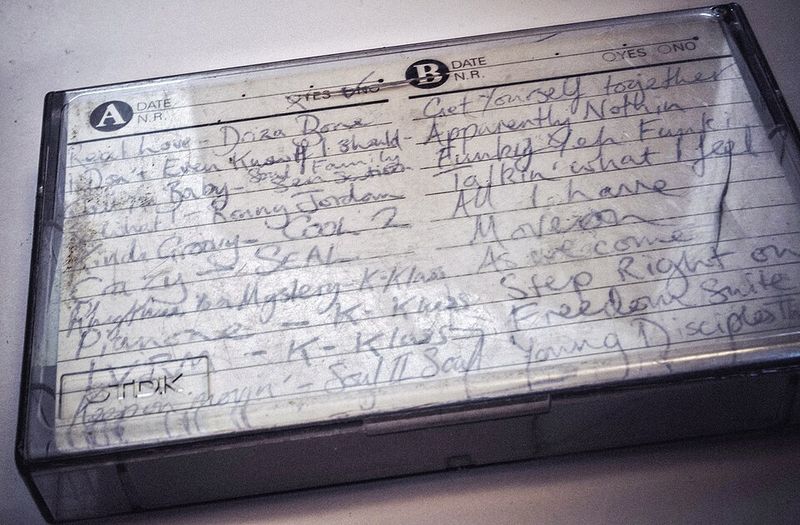 A DATE
N.R. YES NO
Real Love - Driza Bone
I Don't Even Know If I Should - Soul Family
Baby - Sensation
What - Ronny Jordan
Kinda Groovy - Cool 2
Crazy - SEAL
Rhythm is a Mystery - K-Klass
- K-Klass
- K-Klass
Keepin' movin' - Soul II Soul
TDK
B DATE
N.R. YES NO
Get Yourself together
Apparently Nothin
Funky Yeh Funki
Talkin' what I feel
All I have
Move on
As we come
Step Right on
Freedom Suite
Young Disciples